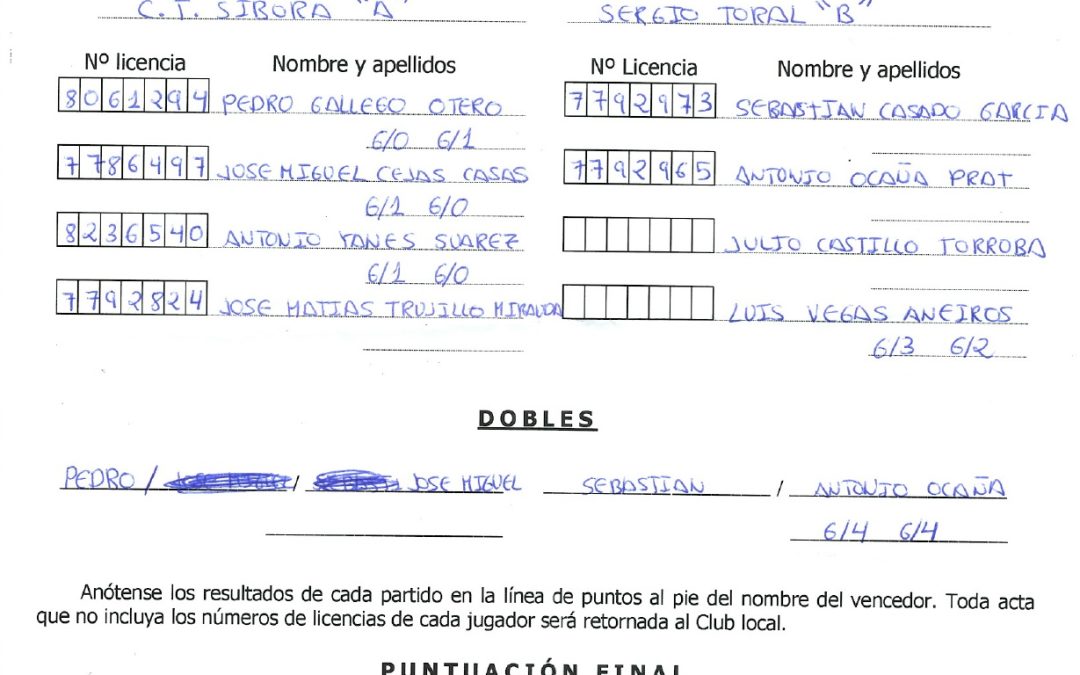 C. T. SIBORA "A" SERGIO TORAL "B"
Nº licencia Nombre y apellidos Nº Licencia Nombre y apellidos
8061294 PEDRO GALLEGO OTERO 7792973 SEBASTIAN CASADO GARCIA
6/0 6/1
7786497 JOSE MIGUEL CEJAS CASAS 7792965 ANTONIO OCAÑA PRAT
6/1 6/0
8236540 ANTONIO YANES SUAREZ JULIO CASTILLO TORROBA
6/1 6/0
7792824 JOSE MATIAS TRUJILLO MIRANDA LUIS VEGAS ANEIROS
6/3 6/2
DOBLES
PEDRO / / JOSE MIGUEL SEBASTIAN / ANTONIO OCAÑA
6/4 6/4
Anótense los resultados de cada partido en la línea de puntos al pie del nombre del vencedor. Toda acta
que no incluya los números de licencias de cada jugador será retornada al Club local.
PUNTUACIÓN FINAL